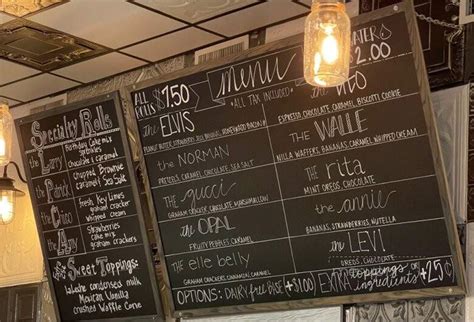 Specialty Rolls
the Larry
Birthday Cake mix
Sprinkles
chocolate & caramel
the Patrick
Chopped Brownie
Caramel
Sea Salt
the Chico
fresh Key Limes
graham cracker
whipped cream
the Amy
Strawberries
cake mix
graham crackers
Sweet Toppings:
condensed milk
Mexican Vanilla
crushed Waffle Cone
ALL ROLLS $7.50
menu
ALL TAX INCLUDED
$2.00
the ELVIS
PEANUT BUTTER, BACON
the NORMAN
PRETZELS, CARAMEL, CHOCOLATE, SEA SALT
the gucci
GRAHAM CRACKER, CHOCOLATE, MARSHMALLOW
the OPAL
FRUITY PEBBLES, CARAMEL
the elle belly
GRAHAM CRACKERS, CINNAMON, CARAMEL
the
ESPRESSO, CHOCOLATE, CARAMEL, BISCOTTI COOKIE
the WALLE
NILLA WAFFERS, BANANAS, CARAMEL, WHIPPED CREAM
the rita
MINT OREOS, CHOCOLATE
the annie
BANANAS, STRAWBERRIES, NUTELLA
the LEVI
OREOS, CHOCOLATE
OPTIONS: DAIRY free BASE +$1.00 EXTRA toppings or ingredients +25¢